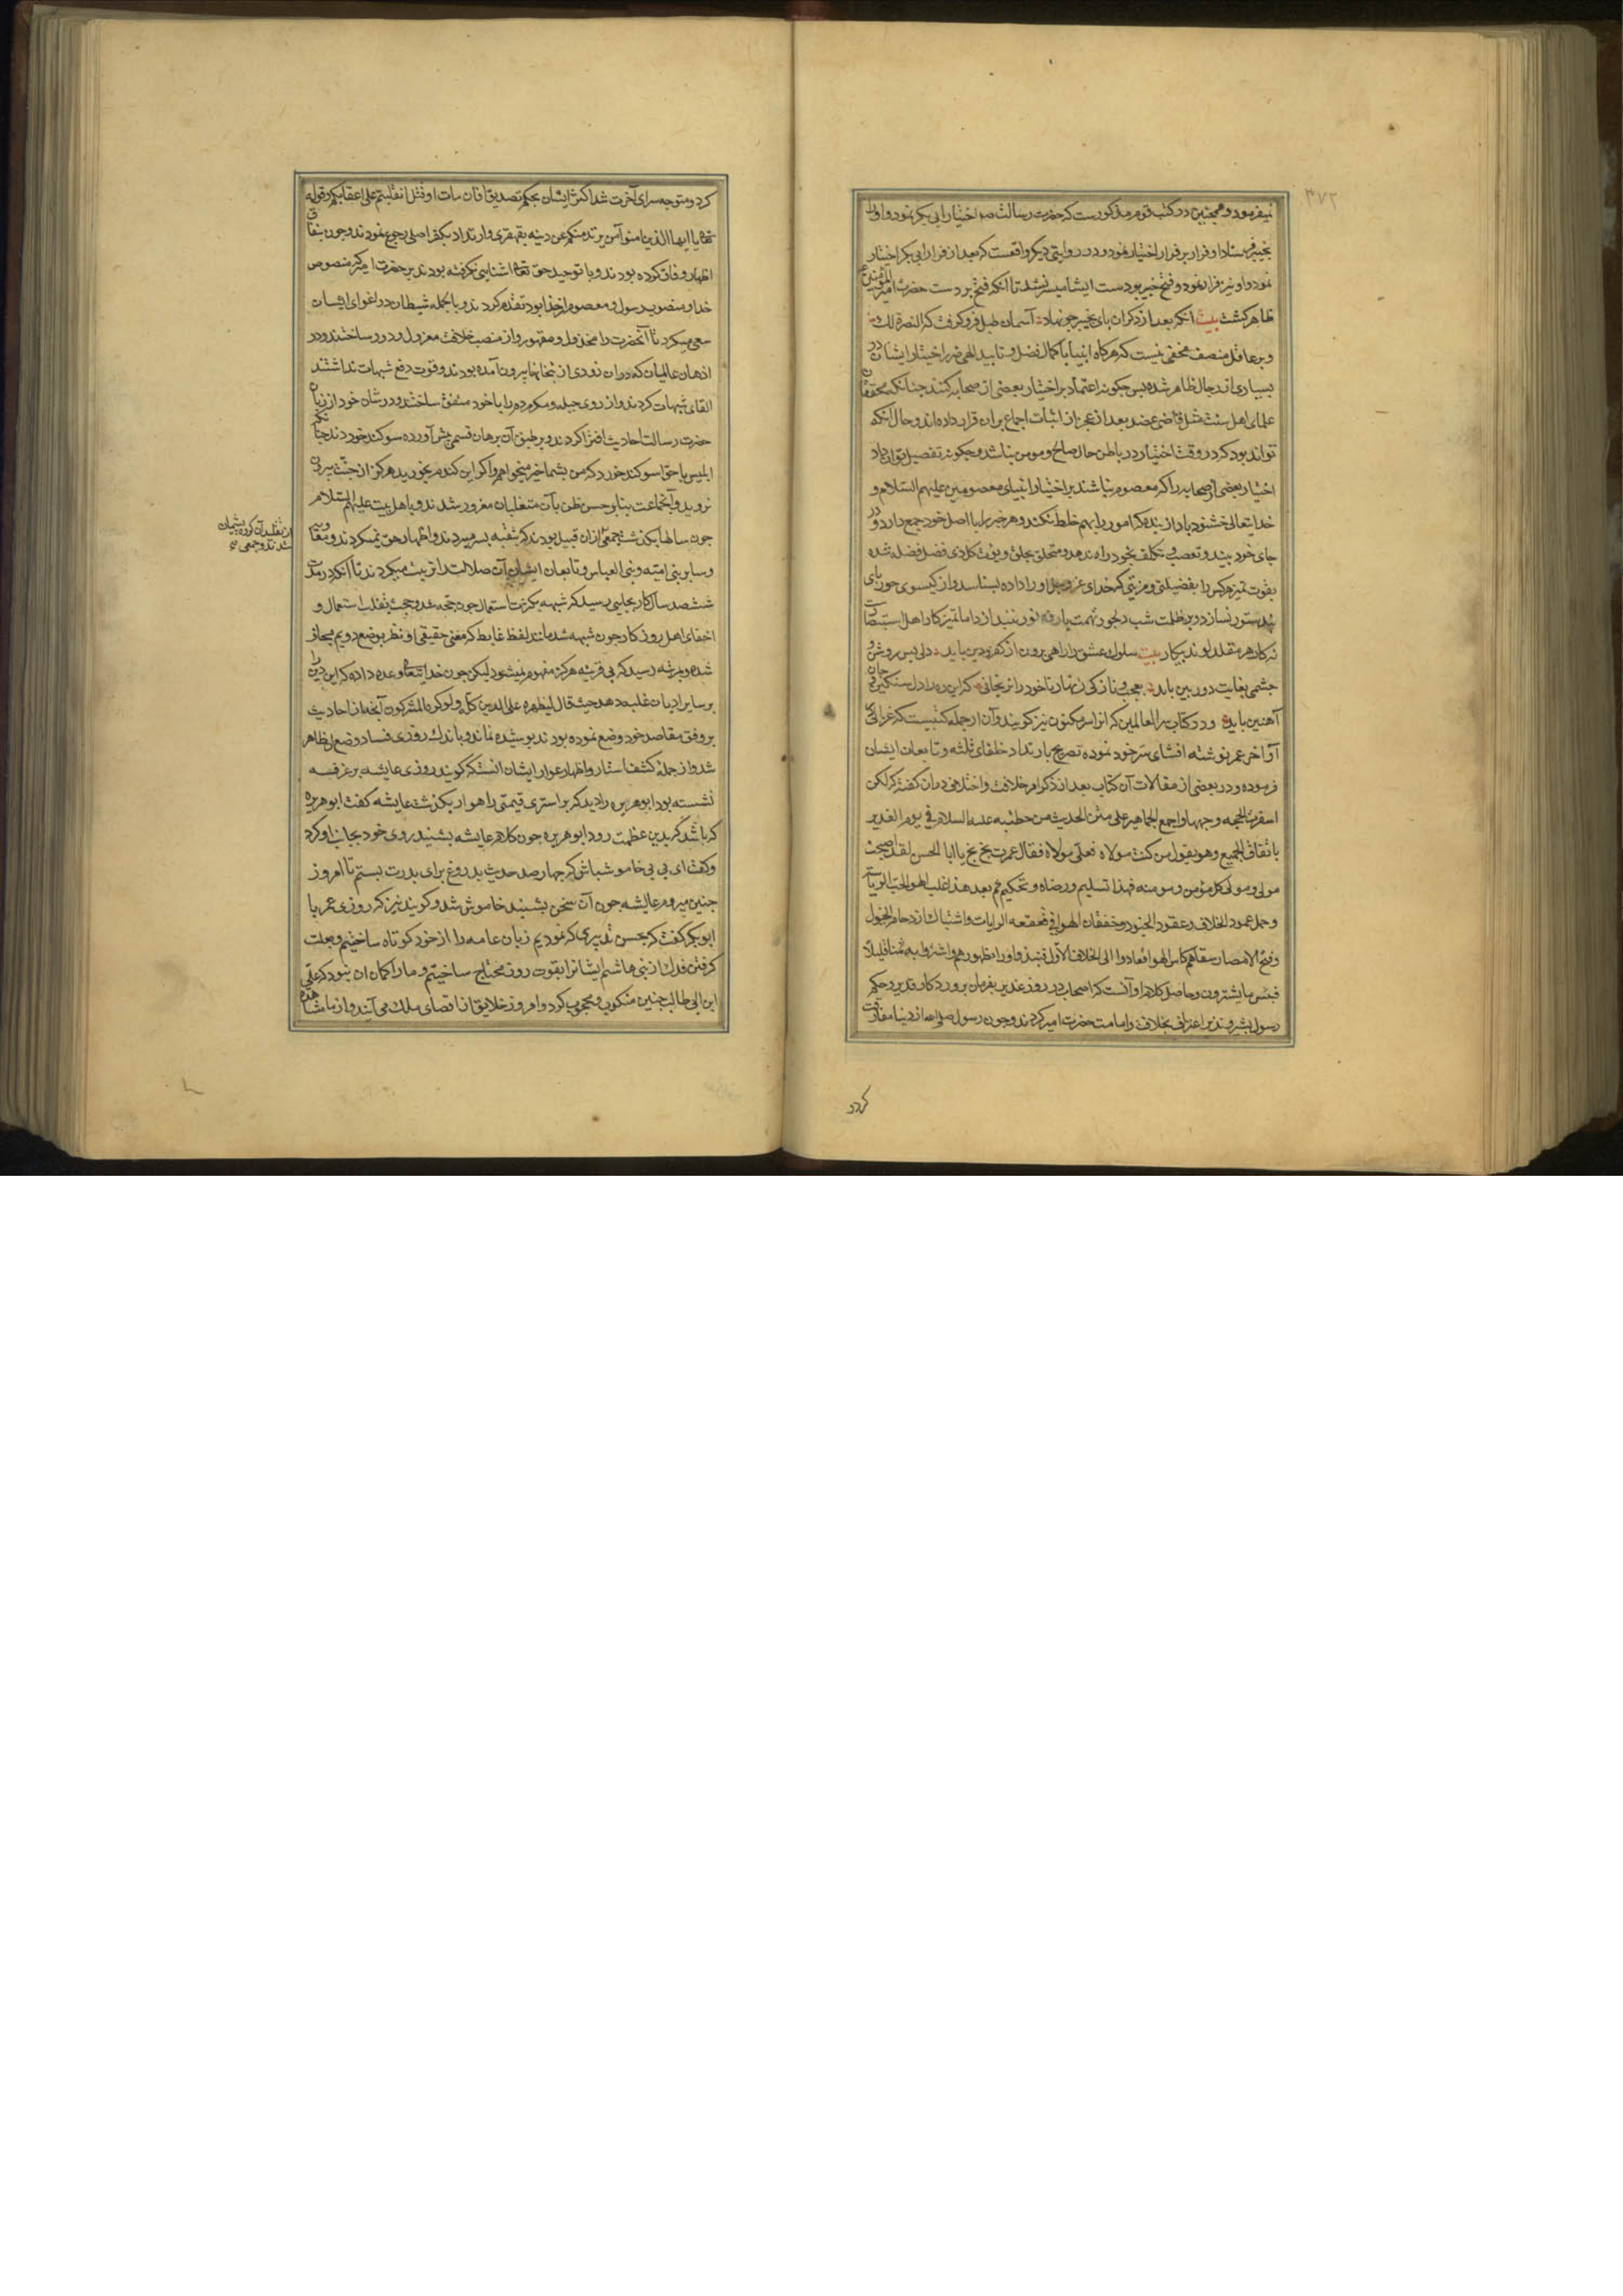 ۳۷۲
نمیفرمود و همچنین در کتب قوم مذکورست که حضرت رسالت صم اختیار ابی بکر نمود و او را
بخیبر فرستاد او فرار بر قرار اختیار نمود و در روایتی دیگر واقعست که بعد از فرار ابی بکر اختیار
نمود و او نیز فرار نمود و فتح خیبر بدست ایشان میسر نشد تا آنکه فتح بر دست حضرت امیر المؤمنین ع
ظاهر کشت بیت آنکه بعد از دکران پای بخیبر چو نهاد آسمان طبل فرو کوفت که النصرة لک
و بر عاقل منصف مخفی نیست که هرکاه انبیا با کمال فضل و تایید الهی در اختیار ایشان در
بسیاری از رجال ظاهر شده پس چکونه اعتماد بر اختیار بعضی از صحابه کنند چنانکه محققان
علمای اهل سنت مثل قاضی عضد بعد از عجز از اثبات اجماع بران قرار داده اند و حال آنکه
تواند بود که در وقت اختیار در باطن حال صالح و مومن نباشد و چکونه تفصیل توان داد
اختیار بعضی از صحابه را که معصوم نباشند بر اختیار انبیای معصومین علیهم السلام و
خدایتعالی خشنود باد از بنده که امور را بهم خلط نکند و هر خبر را با اصل خود جمع دارد و در
جای خود بیند و تعصب و تکلف بخود راه ندهد و متحلی بحلی و یؤت کل ذی فضل فضله شده
بقوت تمیز هرکس را بفضیلتی و مزیتی که خدای عز و جل او را داده بشناسد و از کیسوی حور پای
بند ستور نسازد و بر ظلمت شب دیجور تهمت پارهٔ نور نبندد اما تمیز کار اهل استبصارت
نه کار هر مقلد لوند بیکار بیت سلوک عشق را راهی برون از کفر و دین باید دلی بس روشن و
چشمی بغایت دور بین باید بعجب و نازکی زنهار تا خود را نرنجانی که این ره را دل سنکین و جان
آهنین باید و در کتاب سر العالمین که انرا سر مکنون نیز کویند و آن از جمله کتبیست که غزالی در
آواخر عمر نوشته افشای سر خود نموده تصریح بارتداد خلفای ثلثه و تابعان ایشان
فرموده و در بعضی از مقالات آن کتاب بعد از ذکر امر خلافت و اختلاف دران کفته که لکن
اسفرت الحجه وجهها و اجمع الجماهیر علی متن الحدیث من خطبته علیه السلام فی یوم الغدیر
باتفاق الجمیع و هو یقول من کنت مولاه فعلی مولاه فقال عمر بخ بخ یا ابا الحسن لقد اصبحت
مولی و مولی کل مؤمن و مومنه فهذا تسلیم و رضاه و تحکیم ثم بعد هذا غلب الهوا لحب الریاسة
و حمل عمود الخلافه و عقود البنود و خفقان الهوا فی قعقعه الرایات و اشتباک ازدحام الخیول
و فتح الامصار سقاهم کاس الهوا فعادوا الی الخلاف الاول فنبذوه وراء ظهورهم و اشتروا به ثمنا قلیلا
فبئس ما یشترون و حاصل کلام او آنست که اصحاب در روز غدیر بفرمان پروردکار قدیر و حکم
رسول بشیر و نذیر اعتراف بخلافت و امامت حضرت امیر کردند و چون رسول صلی الله از دنیا مفارقت
کردد
کرد و متوجه سرای آخرت شد اکثر ایشان بحکم تصدیق افان مات او قتل انقلبتم علی اعقابکم و قوله
تعالی یا ایها الذین امنوا من یرتد منکم عن دینه بقهقری و ارتداد بکفر اصلی رجوع نمودند و چون بنفاق
اظهار وفاق کرده بودند و با توحید حق تعالی اشنایی نکرفته بودند بر حضرت امیر که منصوص
خدا و منصوب رسول و معصوم از خطا بود تقدم کردند و بالجمله شیطان در اغوای ایشان
سعی میکرد تا آنحضرت را مخذول و مقهور و از منصب خلافت معزول و دور ساختند و در
اذهان عالمیان که دران زودی از بتخانها بیرون آمده بودند و قوت دفع شبهات نداشتند
القای شبهات کردند و از روی حیله و مکر مردم را با خود متفق ساختند و در شان خود از زبان
حضرت رسالت احادیث افترا کردند و بر طبق آن برهان قسمی پیش آورده سوکند خوردند چنانکه
ابلیس با حوا سوکند خورد که من بشما خیر میخواهم و اکر این کندم بخورید هرکز از جنت بیرون
نروید و آنجماعت بنا بر حسن ظن بآن متغلبان مغرور شدند و باهل بیت علیهم السلام
چون سالها بکذشت جمعی ازان قبیل بودند که بتقیه بسر میبردند و اظهار حق نمیکردند و بنقاب
از تقلید آن کرده پشیمان
شدند و جمعی
و سایر بنی امیه و بنی العباس و تابعان ایشان آن ضلالت را تربیت میکردند تا آنکه در مدت
ششصد سال کار بجایی رسید که شبهه بکثرت استعمال چون حجه شد و حجت بقلت استعمال و
اخفای اهل روزکار چون شبهه شد مانند لفظ غایط که معنی حقیقی او نظر بوضع دویم مجاز
شده و بمرتبه رسید که بی قرینه هرکز مفهوم نمیشود لیکن چون خدایتعالی وعده داده که این دین را
بر سایر ادیان غلبه دهد حیث قال لیظهره علی الدین کله و لو کره المشرکون آنچه از احادیث
بر وفق مقاصد خود وضع نموده بودند پوشیده نماند و باندک روزی فساد وضع آن ظاهر
شد و از جمله کشف استار و اظهار عوار ایشان انستکه کویند روزی عایشه بر غرفه
نشسته بود ابو هریره را دید که بر استری قیمتی راهوار بکذشت عایشه کفت ابو هریره
که باشد که بدین عظمت رود ابو هریره چون کلام عایشه بشنید روی خود بجانب او کرد
و کفت ای بی بی خاموش باش که چهار صد حدیث بدروغ برای پدرت بستم تا امروز
چنین میروم عایشه چون آن سخن بشنید خاموش شد و کویند نیز که روزی عمر با
ابو بکر کفت که بحسن تدبیری که نمودیم زبان عامه را از خود کوتاه ساختیم و بعلت
کرفتن فدک از بنی هاشم ایشانرا بقوت روز محتاج ساختیم و ما را کمان ان نبود که علی
ابن ابی طالب چنین منکوب و محجوب کردد و امروز خلایق از اقصای ملک می آیند و از ما مشاهده